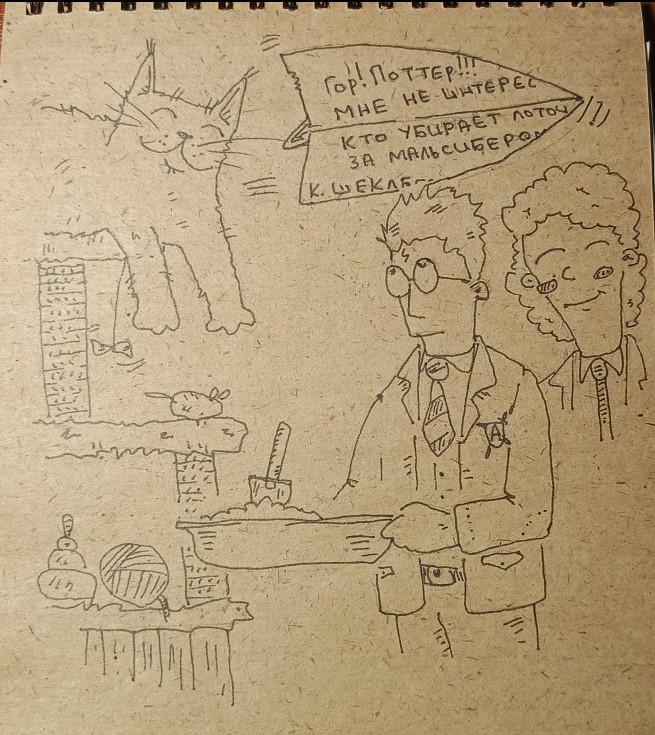 ГОР! ПОТТЕР!!!
МНЕ НЕ ИНТЕРЕС
КТО УБИРАЕТ ЛОТОЧ
ЗА МАЛЬСИБЕРОМ
К. ШЕКЛБ
А